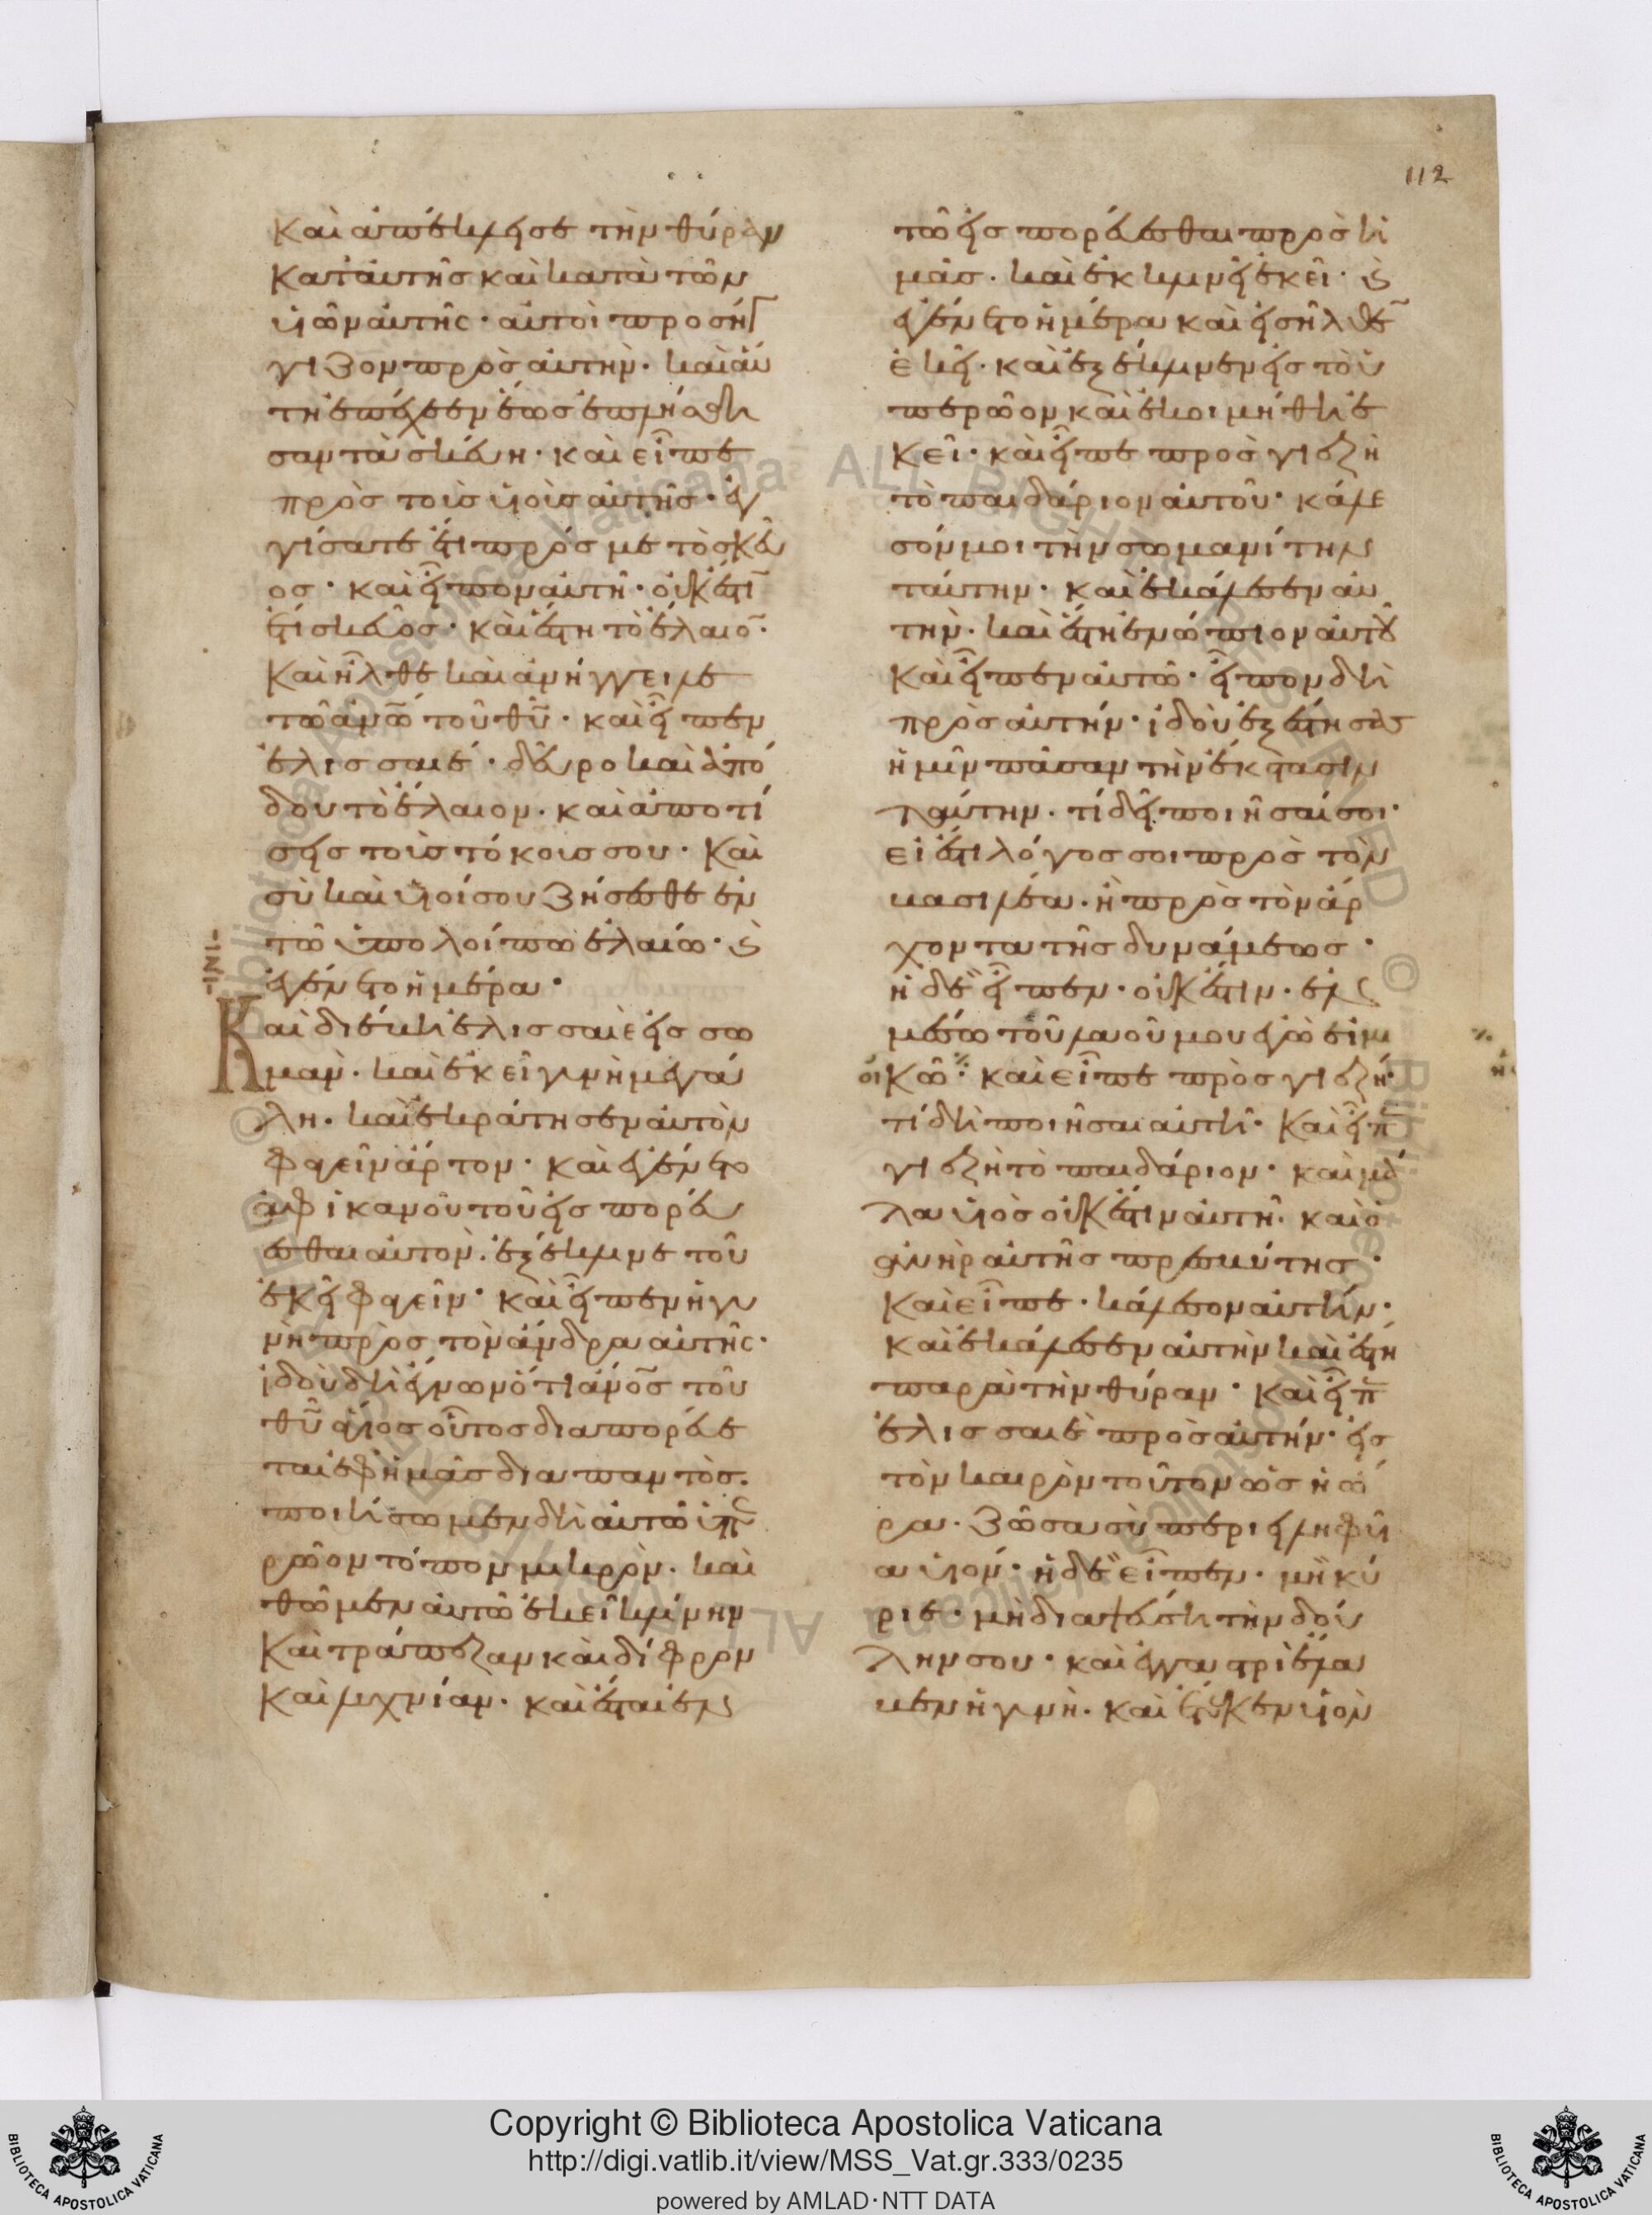 112
Καὶ ἀπέκλησε τὴν θύραν
κατ' αὐτῆς καὶ κατὰ τῶν
υἱῶν αὐτῆς· αὐτοὶ προσήγ
γιζον πρὸς αὐτήν· καὶ αὐ
τὴ ἐπέχεεν ἕως ἐπλήσθη
σαν τὰ σκεύη· καὶ εἶπε
πρὸς τοὺς υἱοὺς αὐτῆς· ἐγ
γίσατε ἔτι πρός με τὸ σκεῦ
ος· καὶ εἶπον αὐτῆ· οὐκ ἔστῑ
ἔτι σκεῦος· καὶ ἔστη τὸ ἔλαιο̄·
Καὶ ἦλθε καὶ ἀνήγγειλε
τῶ ἀν̅ω̅ τοῦ θ̅υ̅· καὶ εἶπεν
ἐλισσαιέ· δεῦρο καὶ ἀπό
δου τὸ ἔλαιον· καὶ ἀποτί
σεις τοὺς τόκους σου· Καὶ
σὺ καὶ υἱοί σου ζήσεσθε ἐν
τῶ ὑπολοίπω ἐλαίω· ϗ
ἐγένετο ἡμέρα·
Καὶ διέβη ἐλισσαιὲ εἰς σω
μάν· καὶ ἐκεῖ γυνὴ μεγά
λη· καὶ ἐκράτησεν αὐτὸν
φαγεῖν ἄρτον· καὶ ἐγένετο
ἀφ ἱκανοῦ τοῦ εἰσπορεύ
εσθαι αὐτόν· ἐξέκλινε τοῦ
ἐκεῖ φαγεῖν· καὶ εἶπεν ἡ γυ
νὴ πρὸς τὸν ἄνδρα αὐτῆς·
ἰδοὺ δὴ ἔγνων ὅτι ἄν̅ο̅ς̅ τοῦ
θ̅υ̅ ἅγιος οὗτος διαπορεύε
ται ἐφ ἡμᾶς διαπαντός·
ποιήσωμεν δὴ αὐτῶ ὑπ̅
ρῶον τόπον μικρόν· καὶ
θῶμεν αὐτῶ ἐκεῖ κλίνην
καὶ τράπεζαν καὶ δίφρον
καὶ λυχνίαν· καὶ ἔσται ἐν
τῶ εἰσπορεύεσθαι πρὸς ἡ
μᾶς· καὶ ἐκκλινεῖ ἐκεῖ· ϗ
ἐγένετο ἡμέρα καὶ εἰσῆλθε̅
ἐκεῖ· καὶ ἐξέκλινεν εἰς τὸ ὑ
περῶον καὶ ἐκοιμήθη ἐ
κεῖ· καὶ εἶπε πρὸς γιεζῆ
τὸ παιδάριον αὐτοῦ· κάλε
σόν μοι τὴν σωμανίτην
ταύτην· καὶ ἐκάλεσεν αὐ
τήν· καὶ ἔστη ἐνώπιον αὐτοῦ
καὶ εἶπεν αὐτῶ· εἶπον δὴ
πρὸς αὐτήν· ἰδοὺ ἐξέστησας
ἡμῖν πᾶσαν τὴν ἔκστασιν
ταύτην· τί δεῖ ποιῆσαί σοι·
εἰ ἔστι λόγος σοι πρὸς τὸν
βασιλέα· ἢ πρὸς τὸν ἄρ
χοντα τῆς δυνάμεως·
ἡ δὲ εἶπεν· οὐκ ἔστιν· ἐν
μέσω τοῦ λαοῦ μου ἐγώ εἰμι
οἰκῶ· καὶ εἶπε πρὸς γιεζῆ·
τί δὴ ποιῆσαι αὐτῆ· Καὶ εἶπ̅
γιεζῆ τὸ παιδάριον· καὶ μά
λα υἱὸς οὐκ ἔστιν αὐτῆ· καὶ ὁ
ἀνὴρ αὐτῆς πρεσβύτης·
Καὶ εἶπε· κάλεσον αὐτήν·
καὶ ἐκάλεσεν αὐτὴν καὶ ἔστη
παρὰ τὴν θύραν· καὶ εἶπ̅
ἐλισσαιὲ πρὸς αὐτήν· εἰς
τὸν καιρὸν τοῦτον ὡς ἡ ὥ
ρα· ζῶσα σὺ περιειληφυῖ
α υἱόν· ἡ δὲ εἶπεν· μὴ κύ
ριε· μὴ διαψεύση τὴν δού
λην σου· καὶ ἐν γαστρὶ ἔλα
βεν ἡ γυνή· καὶ ἔτεκεν υἱὸν
Copyright © Biblioteca Apostolica Vaticana
http://digi.vatlib.it/view/MSS_Vat.gr.333/0235
powered by AMLAD·NTT DATA